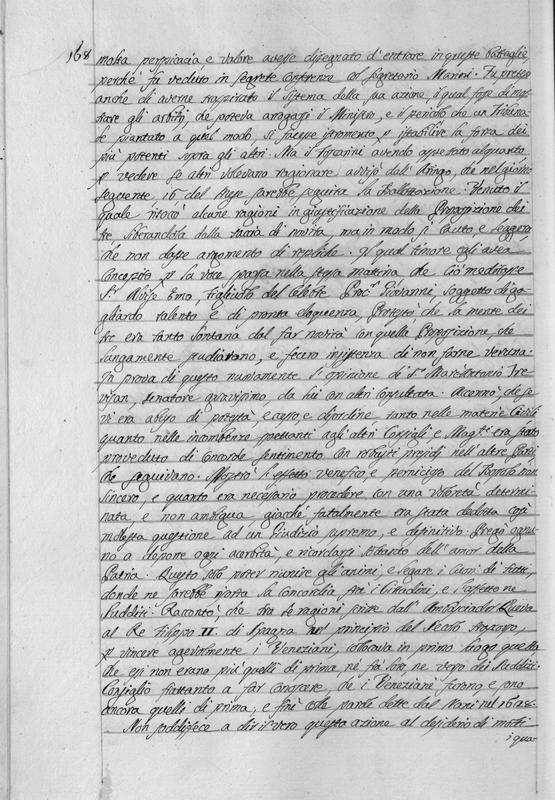 168
molta perspicacia, e valore avesse disegnato d'entrare in queste battaglie
perché fu veduto in segrete conferenze col Segretario Marini. Fu preteso
anche di averne traspirato il sistema della sua azione, il qual fosse di mos-
trare gli arbitrj, che poteva arrogarsi il Ministro, e il pericolo che un Tribuna-
le piantato a qual modo si facesse istromento p istabilire la forza dei
più potenti sopra gli altri. Ma il Foscarini avendo aspettato alquanto
p vedere se altri volevano ragionare avvisò dall'Aringo, che nel giorno
seguente, 16 del Mese sarebbe seguita la Ballottazione. Venuto il
quale ritoccò alcune ragioni in giustificazione della Proposizione dei
tre, liberandola dalla taccia di novità, ma in modo sì cauto, e leggero,
che non dasse argomento di replicho. Il qual timore egli avea
concepito p la voce sparsa nella stessa mattina che ciò meditasse
Sr. Alvise Emo, figliuolo del celebre Procr. Giovanni, soggetto di ga-
gliardo talento e di pronta eloquenza. Protestò che la mente dei
tre era tanto lontana dal far novità con quella Proposizione, che
lungamente studiarono, e fecero insistenza di non farne veruna.
In prova di questo nuovamente l'opinione di Sr. Marc'Antonio Tre-
visan, senatore gravissimo, da lui con altri consultata. Accennò, che se
vi era abuso di potestà, eccesso, e disordine tanto nelle materie Civili
quanto nelle incombenze spettanti agli altri Consigli e Magti. era stato
proveduto di concorde sentimento con robusti presidj nell'altre Parti
che seguivano. Mostrò l'effetto venefico, e pernicioso del Bossolo non
sincero, e quanto era necesario procedere con una volontà determi-
nata, e non ambigua, giacchè fatalmente era stata dedotta così
molesta questione ad un Giudizio supremo, e definitivo. Pregò ognu-
no a deporre ogni acerbità, e ricordarsi soltanto dell'amor della
Patria. Questo solo poter riunire gli animi, e legare i cuori di tutti,
donde ne sarebbe sorta la concordia frà i Cittadini, e l'affetto ne
Sudditi. Raccontò, che tra le ragioni scritte dall'Ambasciador Queva
al Re Filippo II. di Spagna nel principio del Secolo trascorso,
p vincere agevolmente i Veneziani, collocava in primo luogo quella
che essi non erano più quelli di prima, nè frà loro nè verso dei Sudditi.
Consigliò frattanto a far conoscere, che i Veneziani furono, e sono
ancora quelli di prima, e finì colle parole dette dal Nani nel 1628.
Non soddisfece a dir il vero questa azione al desiderio di molti
i qua-